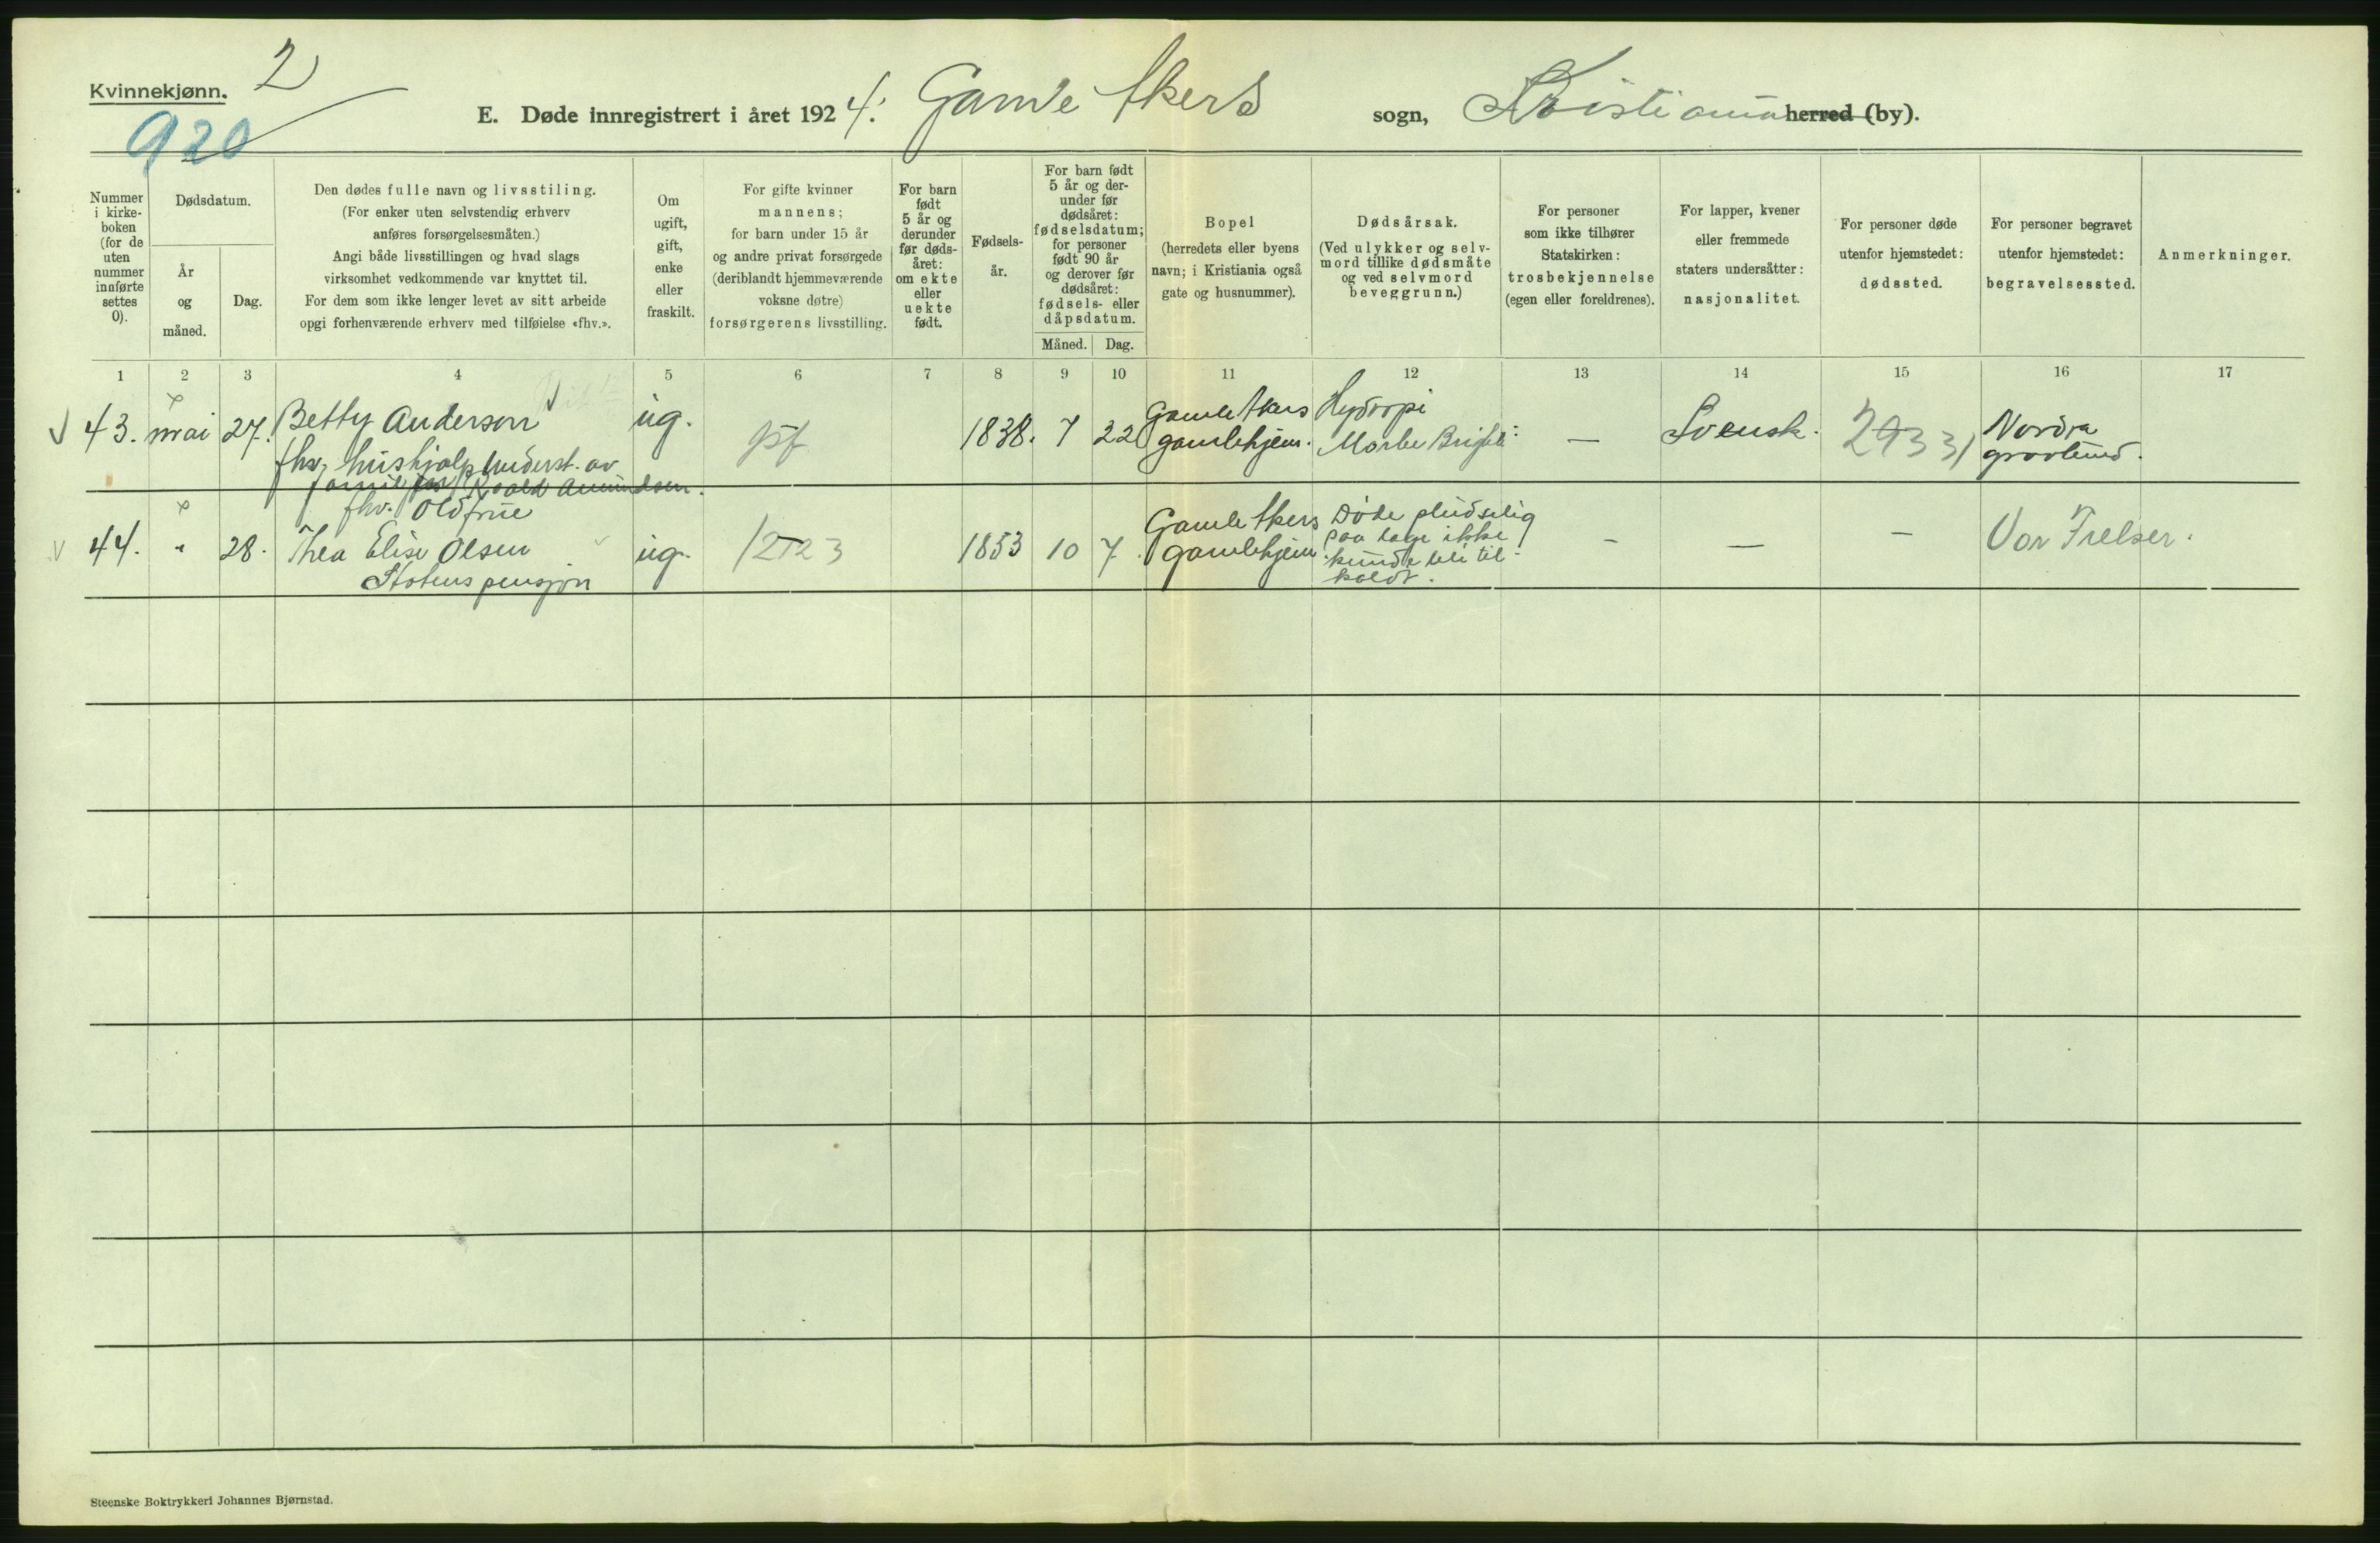 Kvinnekjønn.
2
920
E. Døde innregistrert i året 1924. Gamle Akers sogn, Kristiania herred (by).
Nummer i kirke- boken (for de uten nummer innførte settes 0).
Dødsdatum.
År og måned.
Dag.
Den dødes fulle navn og livsstiling.
(For enker uten selvstendig erhverv
anføres forsørgelsesmåten.)
Angi både livsstillingen og hvad slags
virksomhet vedkommende var knyttet til.
For dem som ikke lenger levet av sitt arbeide
opgi forhenværende erhverv med tilføielse «fhv.».
Om ugift, gift, enke eller fraskilt.
For gifte kvinner
mannens;
for barn under 15 år
og andre privat forsørgede
(deriblandt hjemmeværende
voksne døtre)
forsørgerens livsstilling.
For barn født 5 år og derunder før døds- året: om ekte eller uekte født.
Fødsels- år.
For barn født 5 år og der- under før dødsåret: fødselsdatum; for personer født 90 år og derover før dødsåret: fødsels- eller dåpsdatum.
Måned.
Dag.
Bopel
(herredets eller byens
navn; i Kristiania også
gate og husnummer).
Dødsårsak.
(Ved ulykker og selv-
mord tillike dødsmåte
og ved selvmord
beveggrunn.)
For personer
som ikke tilhører
Statskirken:
trosbekjennelse
(egen eller foreldrenes).
For lapper, kvener
eller fremmede
staters undersåtter:
nasjonalitet.
For personer døde
utenfor hjemstedet:
dødssted.
For personer begravet
utenfor hjemstedet:
begravelsessted.
Anmerkninger.
1 2 3 4 5 6 7 8 9 10 11 12 13 14 15 16 17
43. mai 27. Betty Anderson ug. 1838. 7 22 Gamle Akers Hydropi — Svensk. 2933) Nordre
fhv. hushjelp underst. av gamlehjem. Morbu Brigtii gravlund.
famil Roald Amundsen.
fhv. Oldfrue
44. " 28. Thea Elise Olsen ug. 12T23 1853 10 7. Gamle Akers Døde pludselig – — – Vor Frelser.
Statens pensjon gamlehjem. saa lege ikke
kunde bli til-
kaldt.
Steenske Boktrykkeri Johannes Bjørnstad.